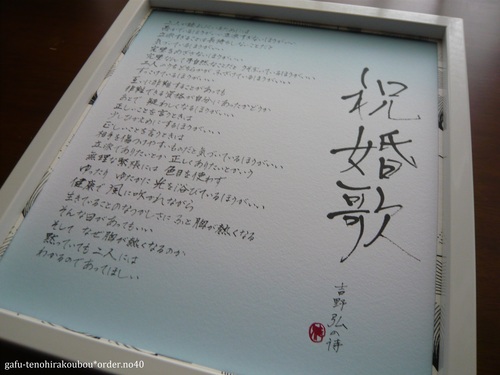 祝婚歌
吉野弘の詩
二人が睦まじくいるためには
愚かでいるほうがいい 立派すぎないほうがいい
立派すぎることは長持ちしないことだと
気づいているほうがいい
完璧をめざさないほうがいい
完璧なんて不自然なことだと うそぶいているほうがいい
二人のうちどちらかが ふざけているほうがいい
ずっこけているほうがいい
互いに非難することがあっても
非難できる資格が自分にあったかどうか
あとで 疑わしくなるほうがいい
正しいことを言うときは
少しひかえめにするほうがいい
正しいことを言うときは
相手を傷つけやすいものだと気づいているほうがいい
立派でありたいとか 正しくありたいとかいう
無理な緊張には 色目を使わず
ゆったり ゆたかに 光を浴びているほうがいい
健康で 風に吹かれながら
生きていることのなつかしさに ふと 胸が熱くなる
そんな日があってもいい
そして なぜ胸が熱くなるのか
黙っていても 二人には
わかるのであってほしい
gafu-tenohirakoubou*order.no40